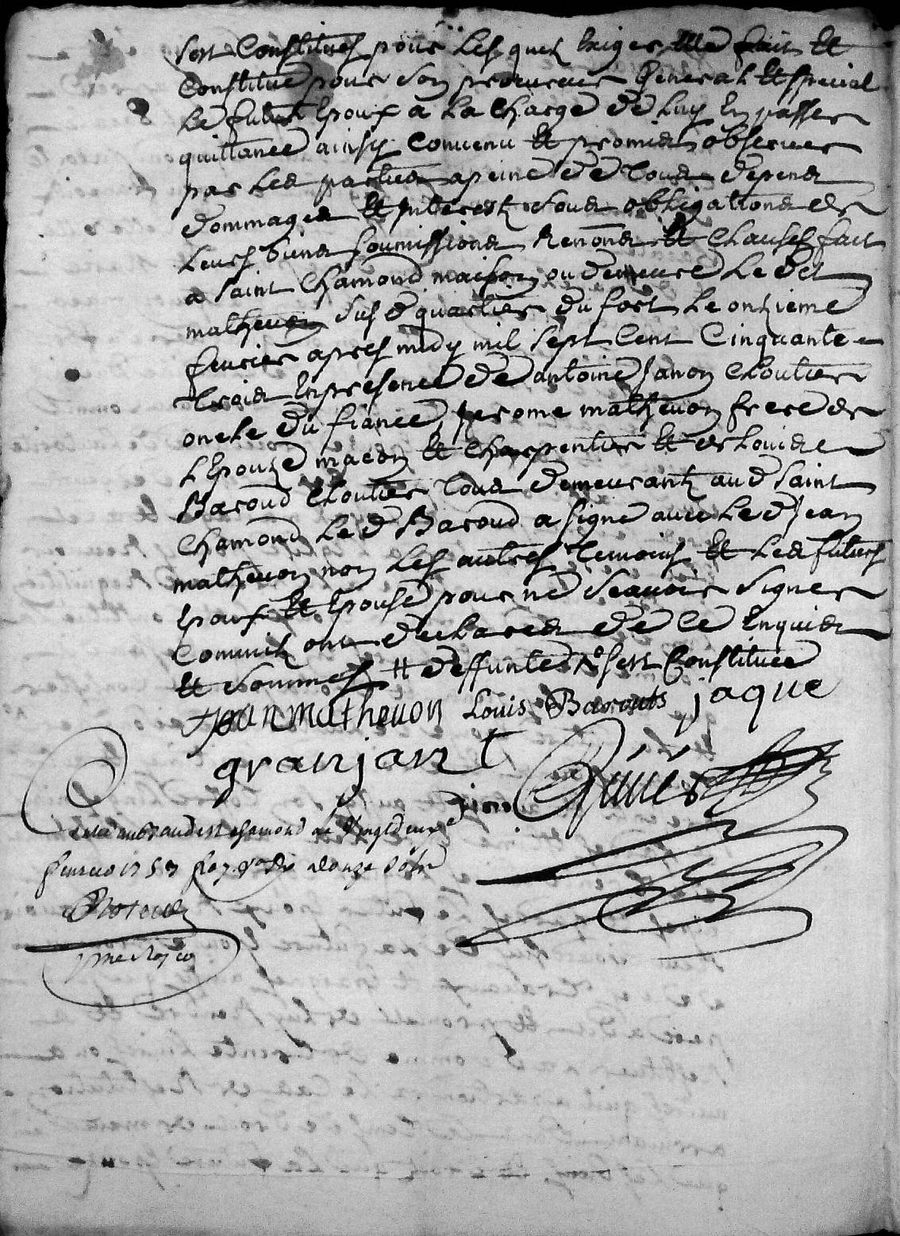 sert Constituee pour lesquels Exiger Elle fait et
Constitue pour son procureur General et special
Le futur Epoux a la Charge de Luy En passer
quittance ainsy Convenu et promis observer
par Les parties apeine de tous depens
dommages et interests sous obligations de
Leurs biens soumissions Renons et Clauses fait
a Saint Chamond maison ou demeure Le dt
mathevon Sus d quartier du fort Le onzieme
fevrier apres midy mil sept Cent Cinquante
trois En presence de antoine Janon Cloutier
oncle du fiancé, Jerome mathevon frere de
L'Epouze macon et Charpentier et de Louis
Baroud Cloutier tous demeurants aud Saint
Chamond Le d Baroud a signé avec Le d Jean
mathevon non Les autres temoins et Les futurs
Epoux et Epouse pour ne Scavoir Signer
Comme ont declaré de Ce Enquis
et sommes # deffunte sert Constituee
Jean mathevon Louis Barouts jaque
granjant
fevrier 1753